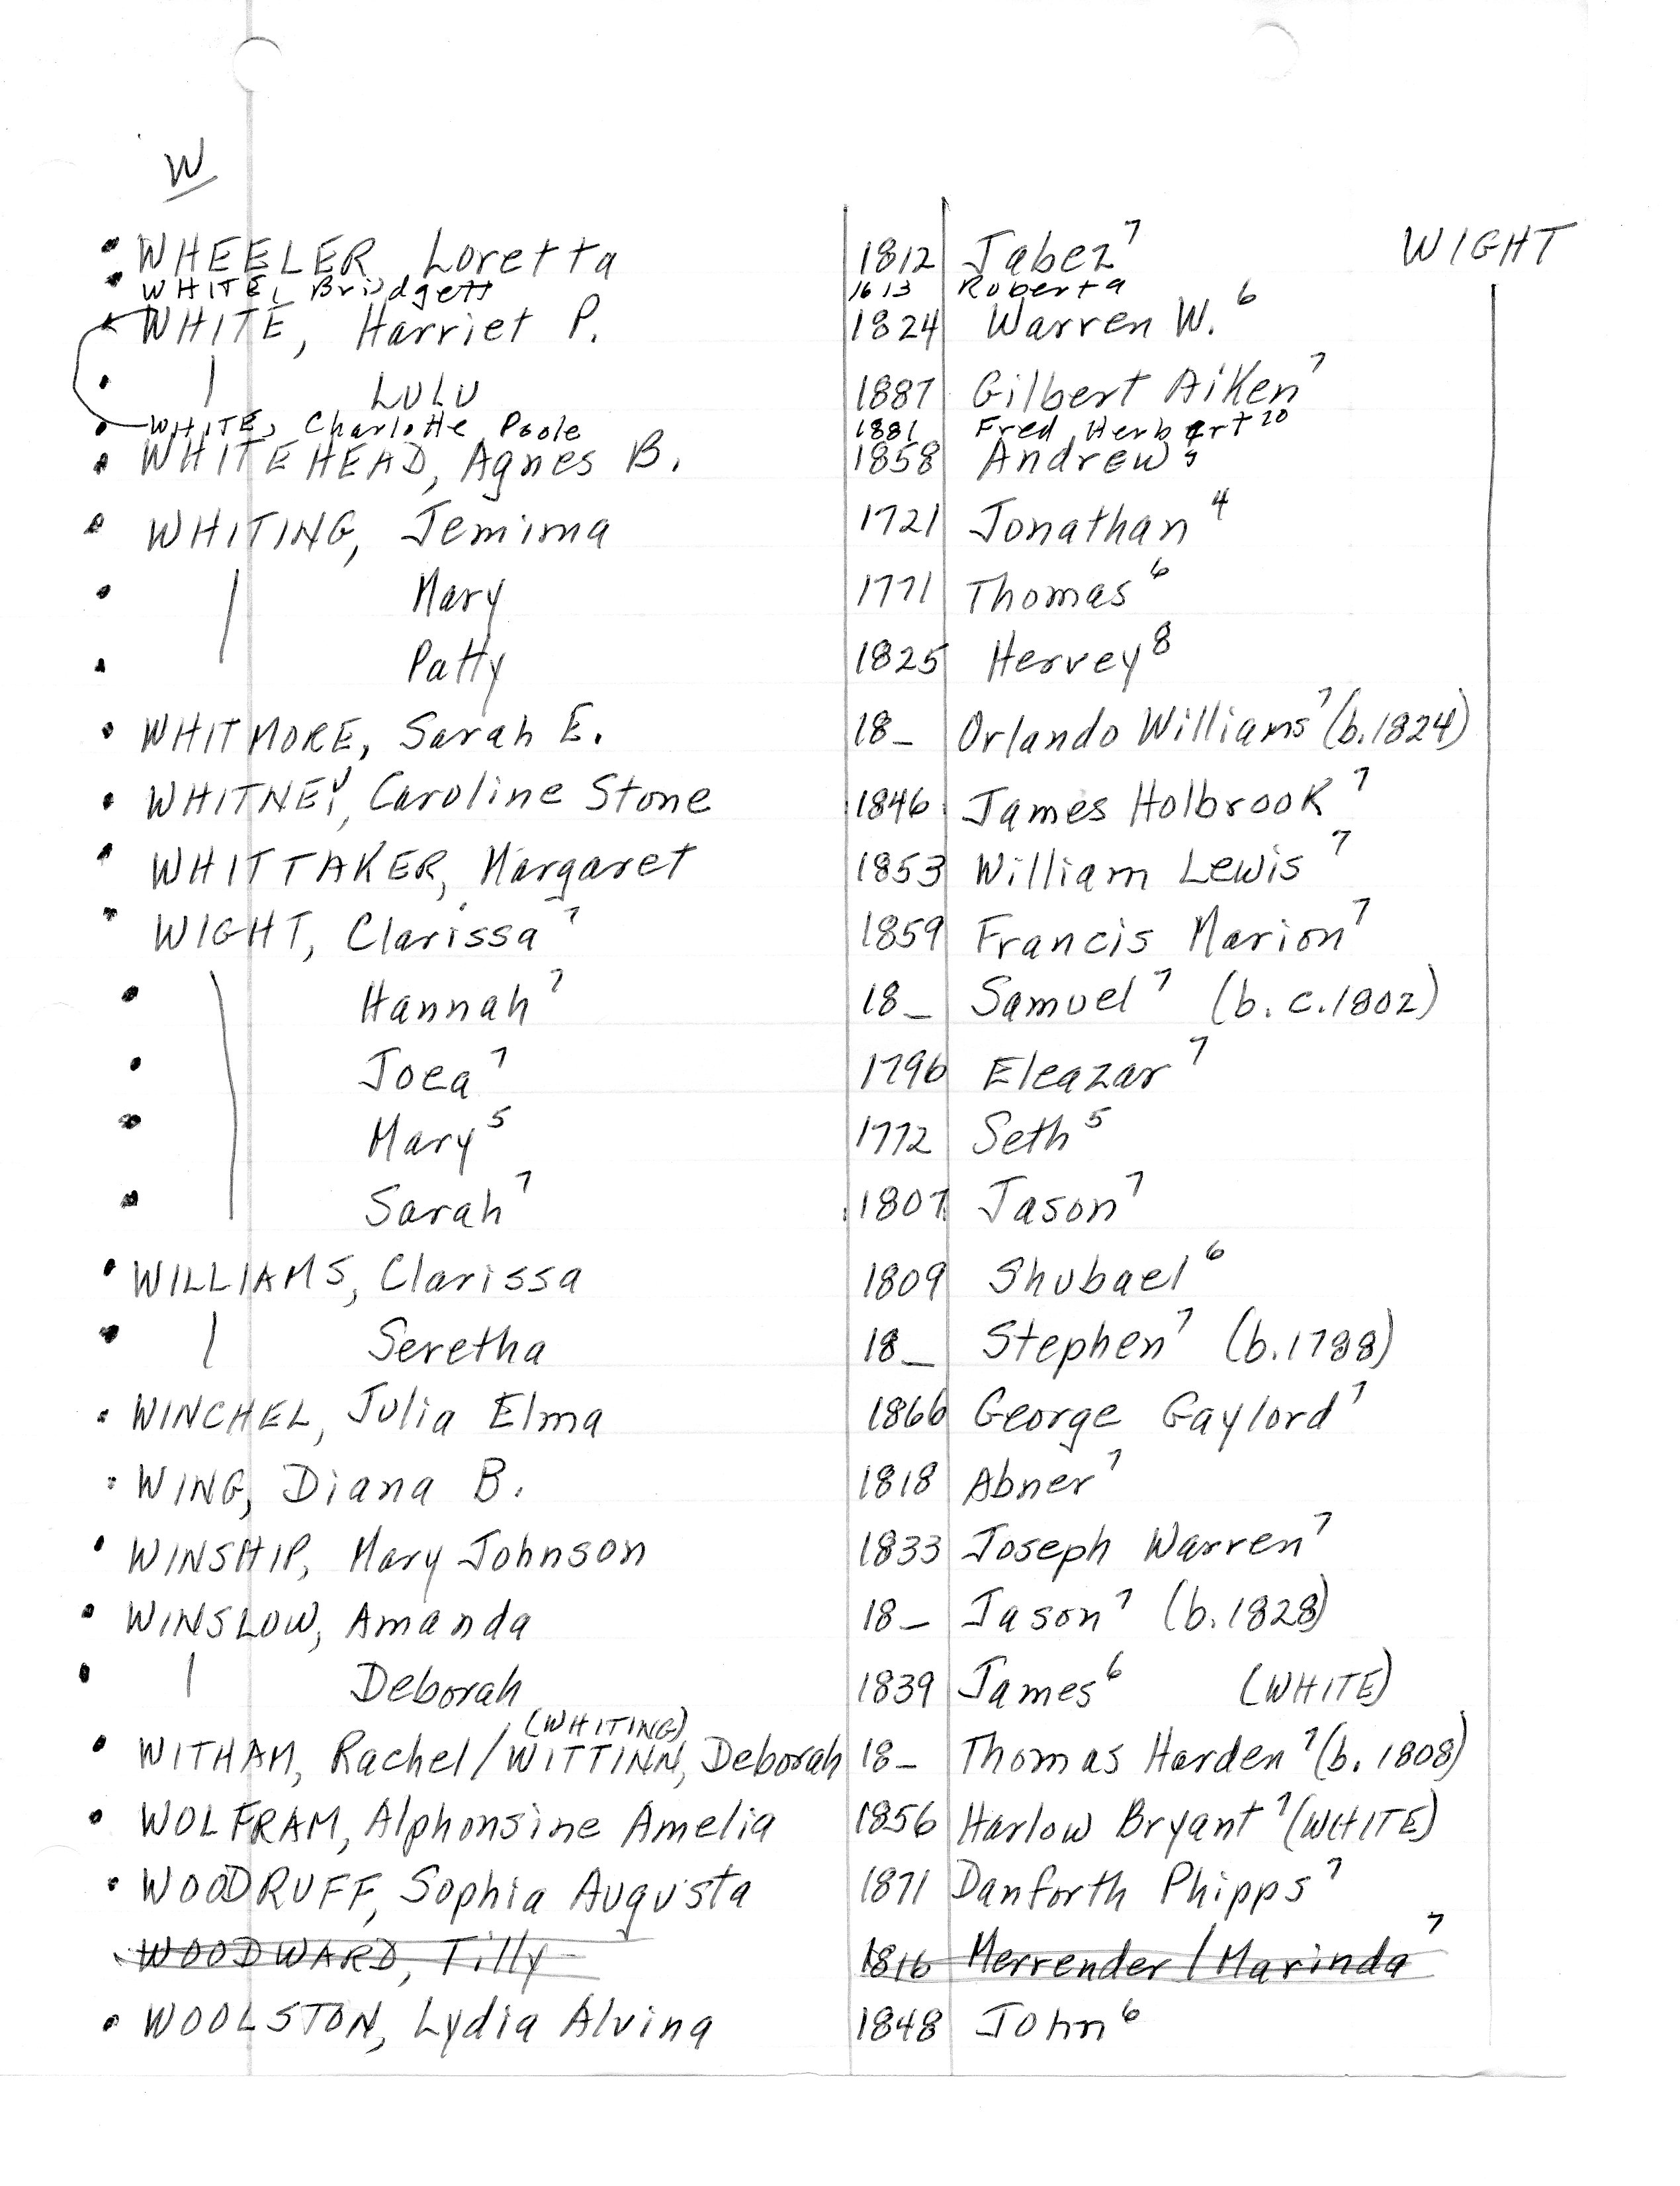 W
WHEELER, Loretta 1812 Jabez⁷ WIGHT
WHITE, Bridgett 1613 Robert a
WHITE, Harriet P. 1824 Warren W.⁶
LULU 1887 Gilbert Aiken⁷
WHITE, Charlotte Poole 1881 Fred Herbert¹⁰
WHITEHEAD, Agnes B. 1858 Andrew⁵
WHITING, Jemima 1721 Jonathan⁴
Mary 1771 Thomas⁶
Patty 1825 Hervey⁸
WHITMORE, Sarah E. 18_ Orlando Williams⁷ (b.1824)
WHITNEY, Caroline Stone 1846 James Holbrook⁷
WHITTAKER, Margaret 1853 William Lewis⁷
WIGHT, Clarissa⁷ 1859 Francis Marion⁷
Hannah⁷ 18_ Samuel⁷ (b. c.1802)
Joea⁷ 1796 Eleazar⁷
Mary⁵ 1772 Seth⁵
Sarah⁷ 1807 Jason⁷
WILLIAMS, Clarissa 1809 Shubael⁶
Seretha 18_ Stephen⁷ (b.1788)
WINCHEL, Julia Elma 1866 George Gaylord⁷
WING, Diana B. 1818 Abner⁷
WINSHIP, Mary Johnson 1833 Joseph Warren⁷
WINSLOW, Amanda 18_ Jason⁷ (b.1828)
Deborah 1839 James⁶ (WHITE)
(WHITING)
WITHAM, Rachel/WITTINN, Deborah 18_ Thomas Harden⁷ (b. 1808)
WOLFRAM, Alphonsine Amelia 1856 Harlow Bryant⁷ (WHITE)
WOODRUFF, Sophia Augusta 1871 Danforth Phipps⁷
WOODWARD, Tilly 1816 Merrender/Marinda⁷
WOOLSTON, Lydia Alvina 1848 John⁶